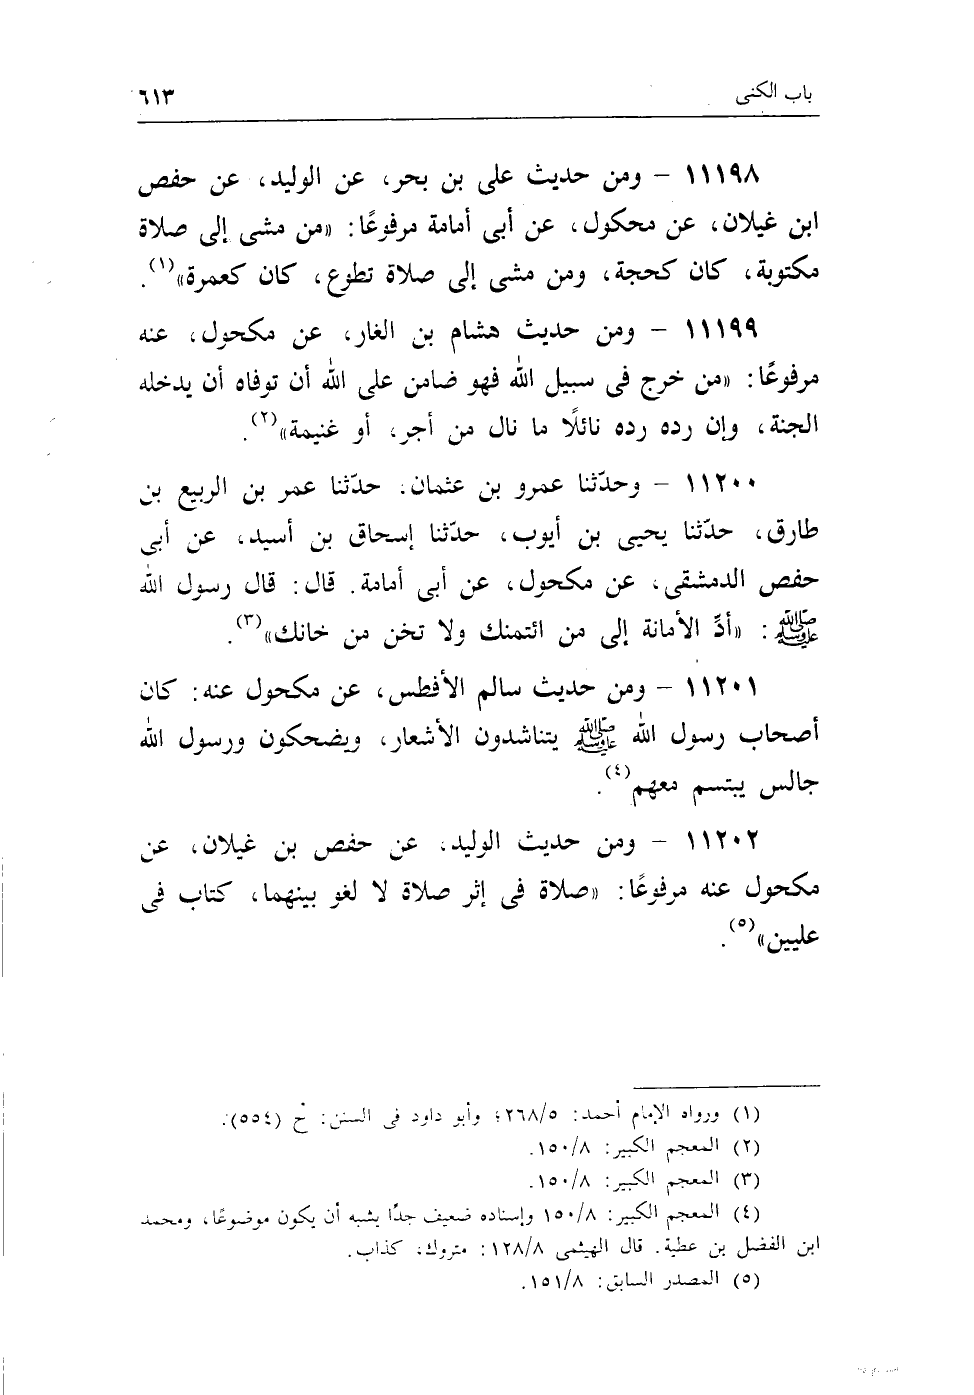 باب الكنى ٦١٣
١١١٩٨ – ومن حديث على بن بحر، عن الوليد، عن حفص
ابن غيلان، عن محكول، عن أبى أمامة مرفوعًا: «من مشى إلى صلاة
مكتوبة، كان كحجة، ومن مشى إلى صلاة تطوع، كان كعمرة»(١).
١١١٩٩ – ومن حديث هشام بن الغار، عن مكحول، عنه
مرفوعًا: «من خرج فى سبيل الله فهو ضامن على الله أن توفاه أن يدخله
الجنة، وإن رده رده نائلًا ما نال من أجر، أو غنيمة»(٢).
١١٢٠٠ – وحدّثنا عمرو بن عثمان. حدّثنا عمر بن الربيع بن
طارق، حدّثنا يحيى بن أيوب، حدّثنا إسحاق بن أسيد، عن أبى
حفص الدمشقى، عن مكحول، عن أبى أمامة. قال: قال رسول الله
ﷺ: «أدِّ الأمانة إلى من ائتمنك ولا تخن من خانك»(٣).
١١٢٠١ – ومن حديث سالم الأفطس، عن مكحول عنه: كان
أصحاب رسول الله ﷺ يتناشدون الأشعار، ويضحكون ورسول الله
جالس يبتسم معهم(٤).
١١٢٠٢ – ومن حديث الوليد، عن حفص بن غيلان، عن
مكحول عنه مرفوعًا: «صلاة فى إثر صلاة لا لغو بينهما، كتاب فى
عليين»(٥).
(١) ورواه الإمام أحمد: ٢٦٨/٥؛ وأبو داود فى السنن: ح (٥٥٤).
(٢) المعجم الكبير: ١٥٠/٨.
(٣) المعجم الكبير: ١٥٠/٨.
(٤) المعجم الكبير: ١٥٠/٨ وإسناده ضعيف جدًا يشبه أن يكون موضوعًا، ومحمد
ابن الفضل بن عطية. قال الهيثمى ١٢٨/٨: متروك، كذاب.
(٥) المصدر السابق: ١٥١/٨.